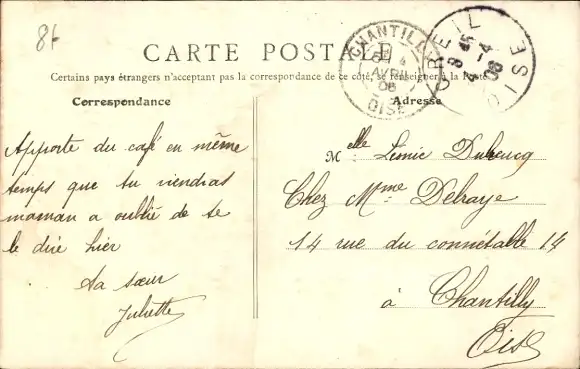 86
CARTE POSTALE
Certains pays étrangers n'acceptant pas la correspondance de ce côté, se renseigner à la Poste
Correspondance
Adresse
CHANTILLY
AVRIL
OISE
CREIL
4-4
06
OISE
Apporte du café en même
temps que tu viendras
maman a oublié de te
le dire hier
Ta sœur
Juliette
Melle
Chez Mme Delraye
14 rue du connétable 14
à Chantilly
Oise